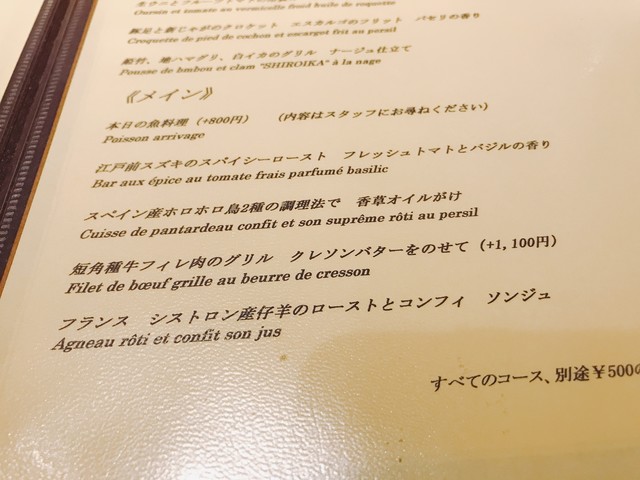 Oursin et tomate au vermicelle fond huile de roquette
豚足と新じゃがのクロケット エスカルゴのフリット パセリの香り
Croquette de pied de cochon et escargot frit au persil
姫竹、地ハマグリ、白イカのグリル ナージュ仕立て
Pousse de bmbou et clam "SHIROIKA" à la nage
《メイン》
本日の魚料理 (+800円) (内容はスタッフにお尋ねください)
Poisson arrivage
江戸前スズキのスパイシーロースト フレッシュトマトとバジルの香り
Bar aux épice au tomate frais parfumé basilic
スペイン産ホロホロ鳥2種の調理法で 香草オイルがけ
Cuisse de pantardeau confit et son suprême rôti au persil
短角種牛フィレ肉のグリル クレソンバターをのせて (+1,100円)
Filet de bœuf grille au beurre de cresson
フランス シストロン産仔羊のローストとコンフィ ソンジュ
Agneau rôti et confit son jus
すべてのコース、別途¥500の